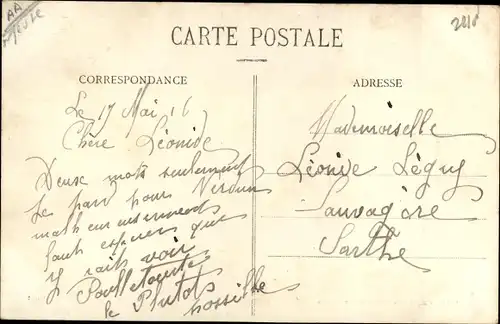 AA
Meuse
2218
CARTE POSTALE
CORRESPONDANCE
ADRESSE
Le 17 Mai 16
Chère Léonide
Deuse mots seulement
Je pard pour Verdun
malheureusement
faut espérer que
J vais voir
le Plutot possible
Mademoiselle
Léonide Léguy
Sauvagère
Sarthe